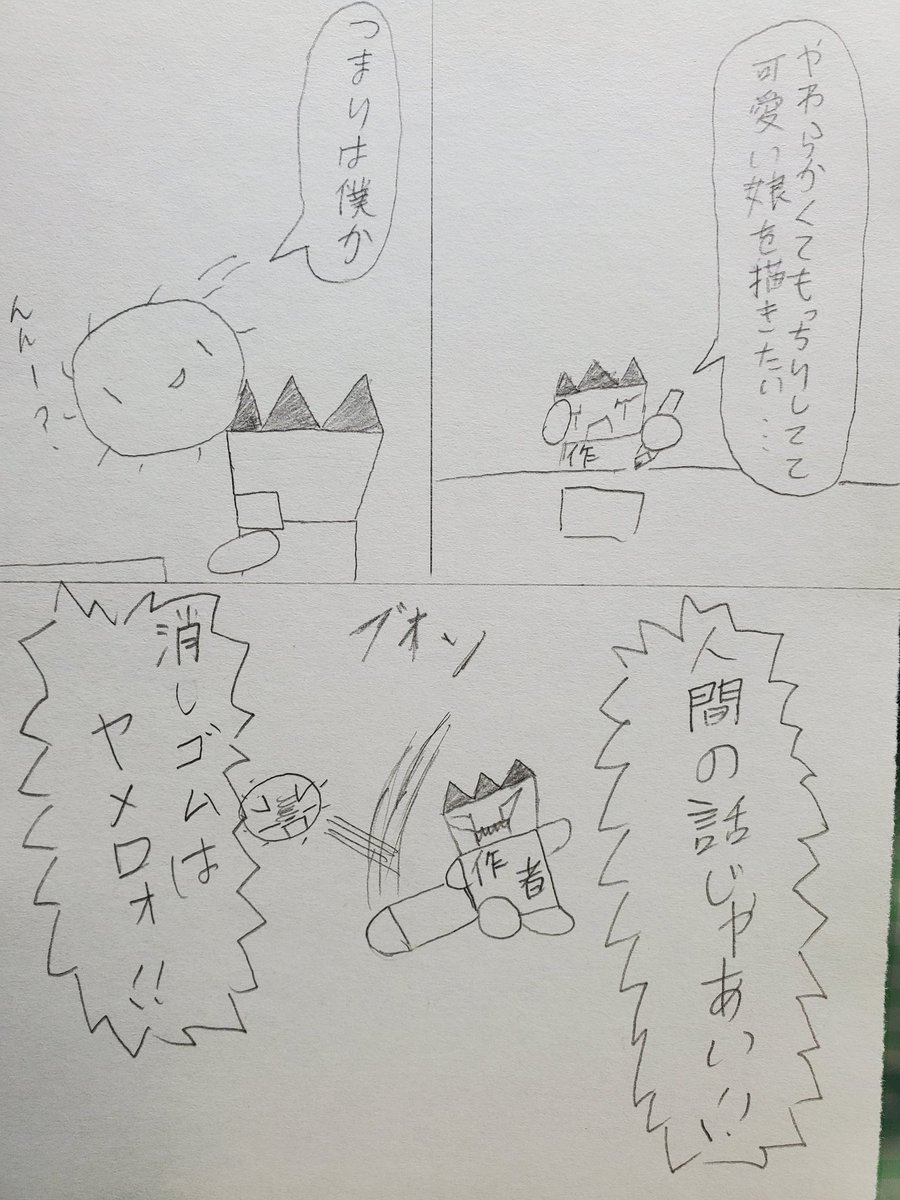 やわらかくてもっちりしてて
可愛い娘を描きたい……
作
つまりは僕か
んんー?
人間の話じゃあい!!
ブオン
作者
消しゴムは
ヤメロォ!!